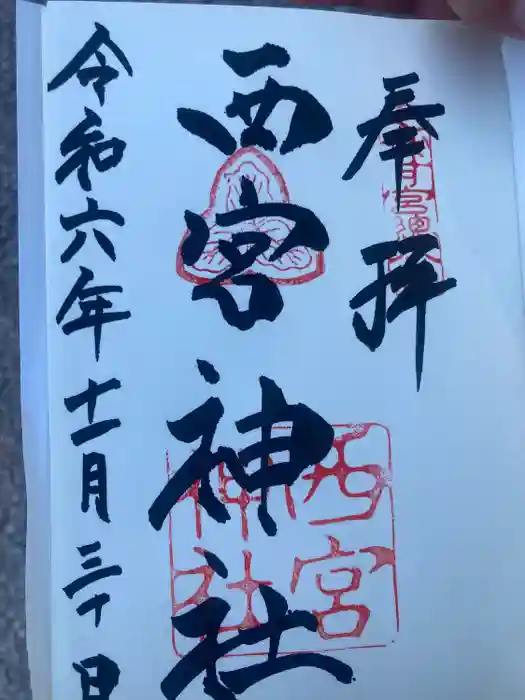 奉拝
西宮神社
令和六年十一月三十日
西宮
神社